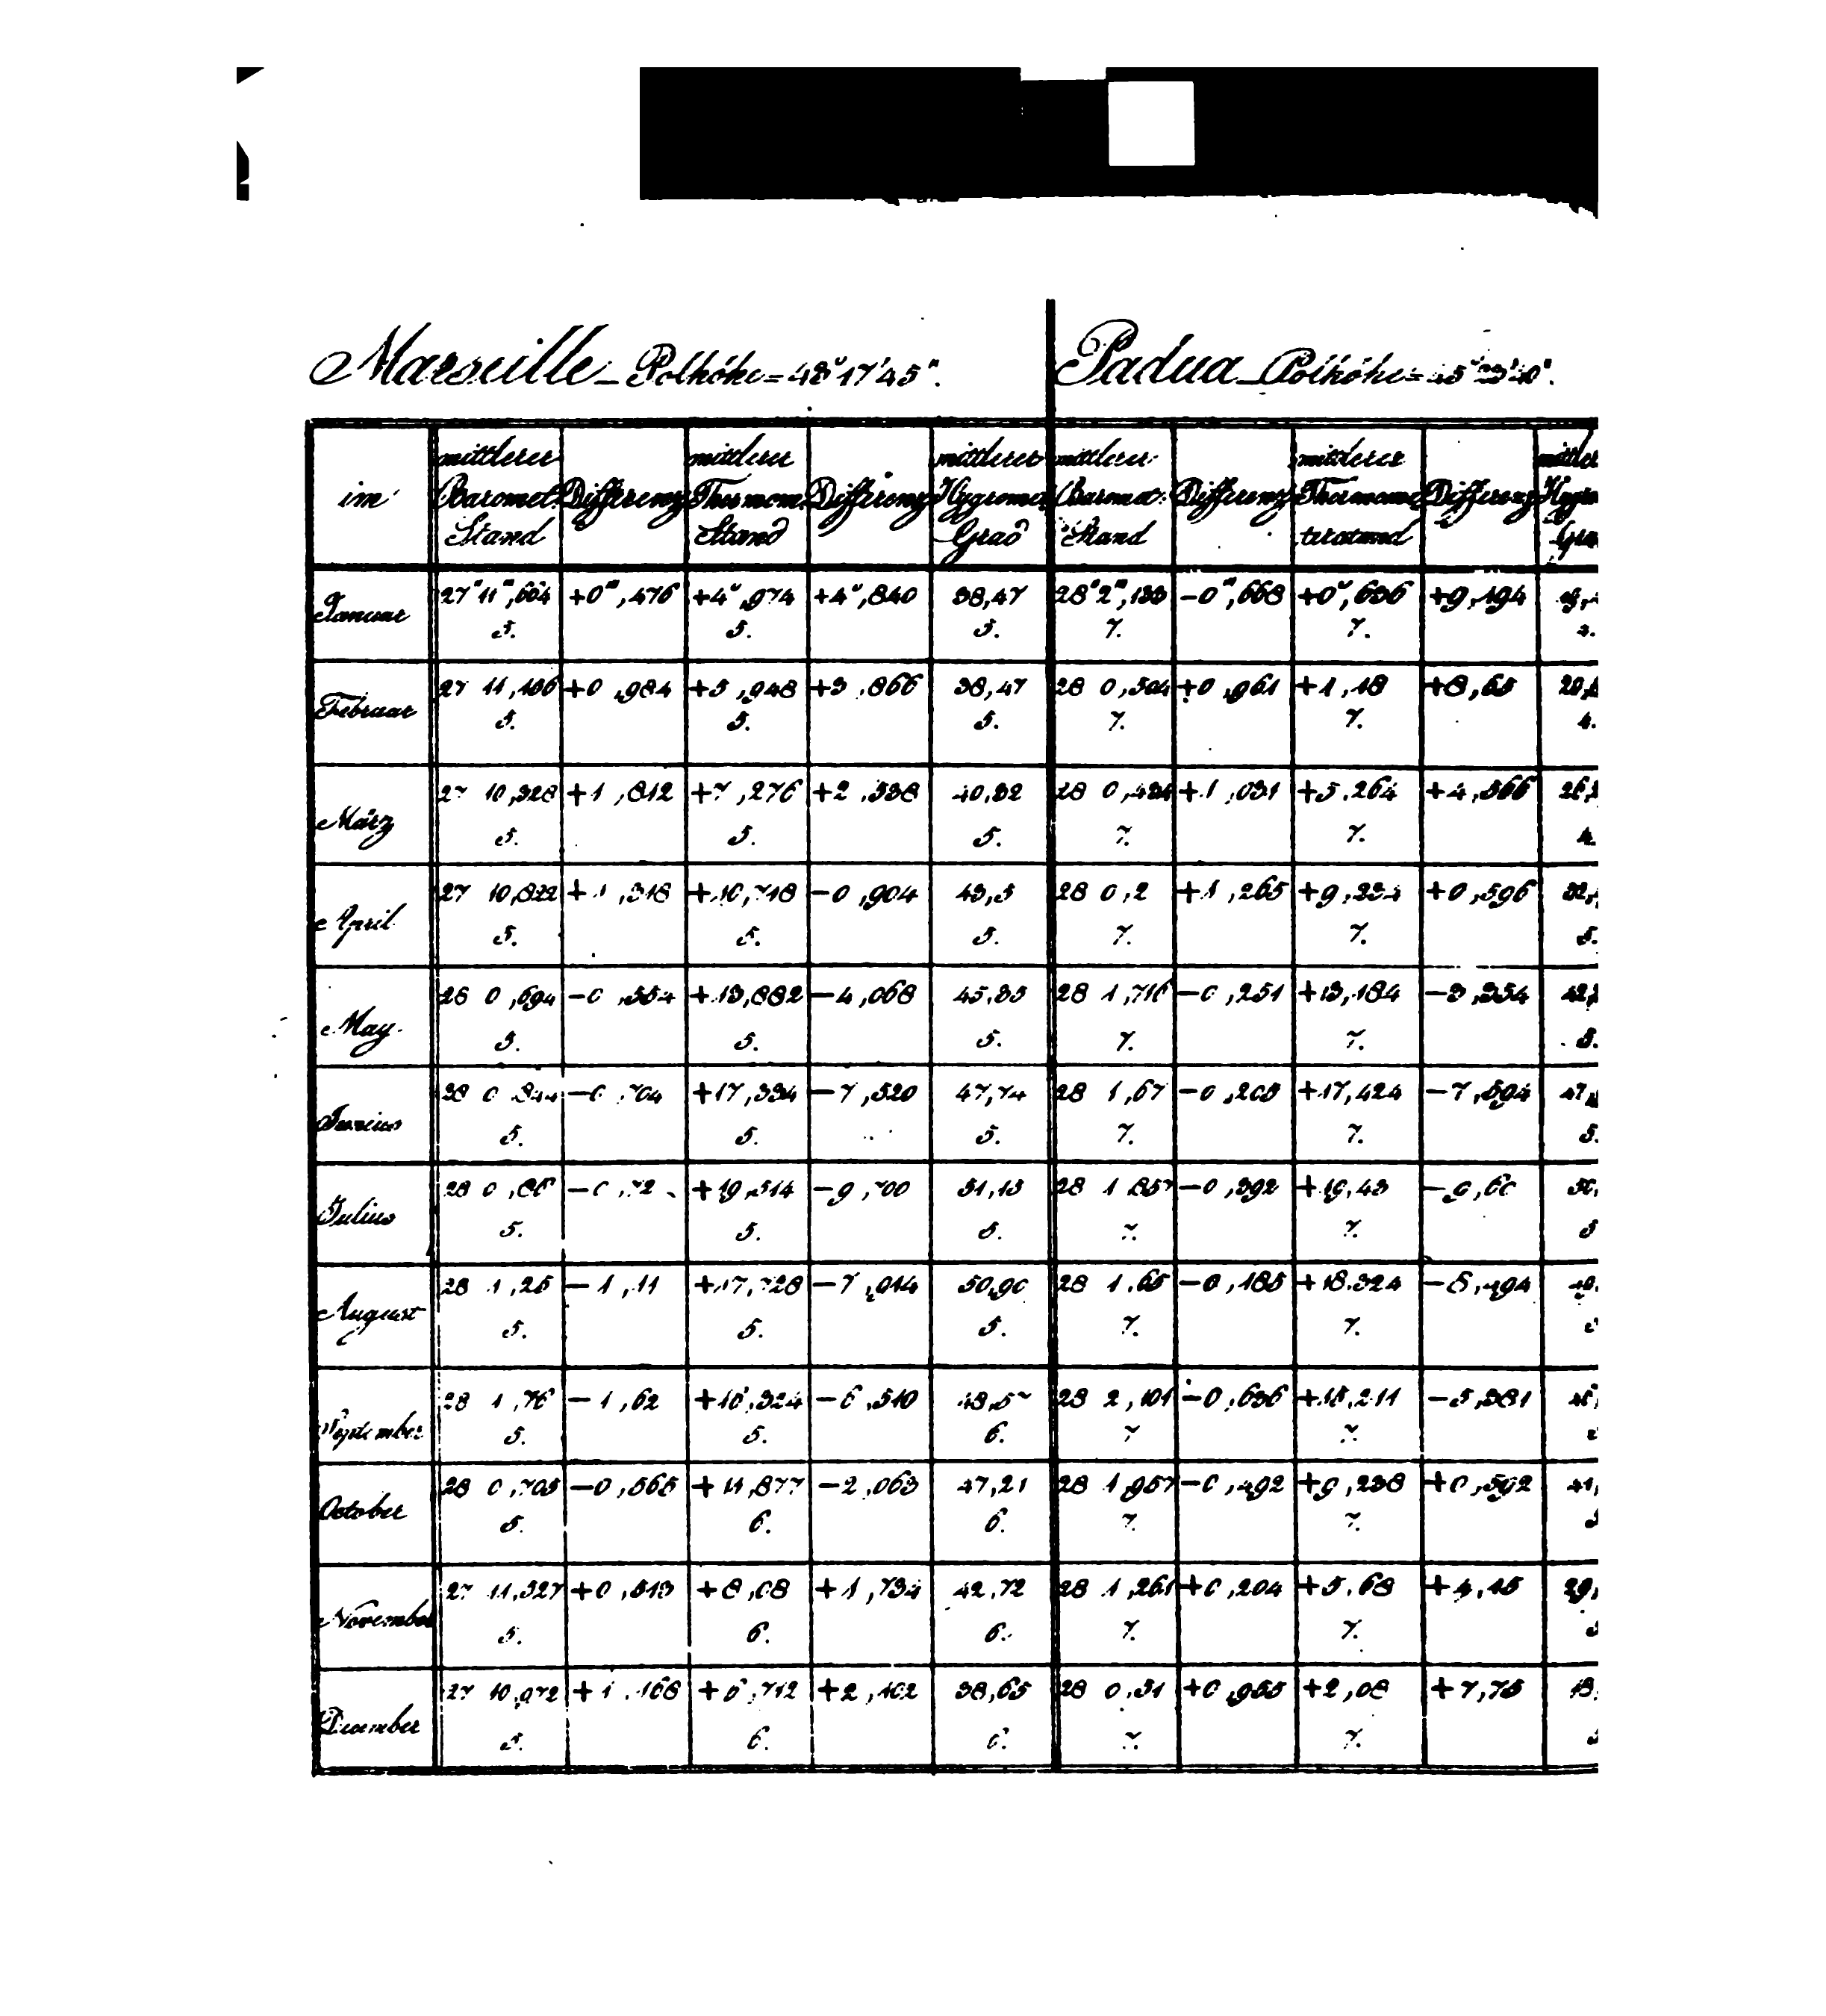 Marseille – Polhöhe = 43° 17' 45".
Padua – Polhöhe = 45° 23' 40".
im mittlerer Baromet. Stand Differenz mittlerer Thermom. Stand Differenz mittlerer Hygromet. Grad mittlerer Baromet. Stand Differenz mittlerer Thermome terstand Differenz
Januar 27" 11"',664 +0"',476 +4°,974 +4°,840 38,47 28" 2"',133 -0"',668 +0°,636 +9,194
5. 5. 5. 7. 7.
Februar 27 11,156 +0,984 +5,948 +3,866 38,47 28 0,504 +0,961 +1,18 +8,65
5. 5. 5. 7. 7. 4.
März 27 10,328 +1,812 +7,276 +2,538 40,32 28 0,434 +1,031 +5,264 +4,566
5. 5. 5. 7. 7. 4.
April 27 10,822 +1,318 +10,718 -0,904 43,5 28 0,2 +1,265 +9,234 +0,596
5. 5. 5. 7. 7. 5.
May 28 0,694 -0,554 +13,882 -4,068 45,35 28 1,716 -0,251 +13,184 -3,354
5. 5. 5. 7. 7. 5.
Junius 28 0,844 -0,704 +17,334 -7,520 47,74 28 1,67 -0,205 +17,424 -7,594
5. 5. 5. 7. 7. 5.
Julius 28 0,86 -0,72 +19,514 -9,700 51,13 28 1,857 -0,392 +19,43 -9,60
5. 5. 5. 7. 7. 5
August 28 1,25 -1,11 +17,728 -7,914 50,90 28 1,65 -0,185 +18,324 -8,494
5. 5. 5. 7. 7.
September 28 1,76 -1,62 +16,324 -6,510 48,57 28 2,101 -0,636 +15,211 -5,381
5. 5. 6. 7 7.
October 28 0,705 -0,565 +11,877 -2,063 47,21 28 1,957 -0,492 +9,238 +0,592
5. 6. 6. 7. 7.
November 27 11,327 +0,813 +8,08 +1,734 42,72 28 1,261 +0,204 +5,68 +4,15
5. 6. 6. 7. 7.
December 27 10,972 +1,168 +6,712 +2,102 38,65 28 0,51 +0,955 +2,08 +7,75
5. 6. 6. 7. 7.